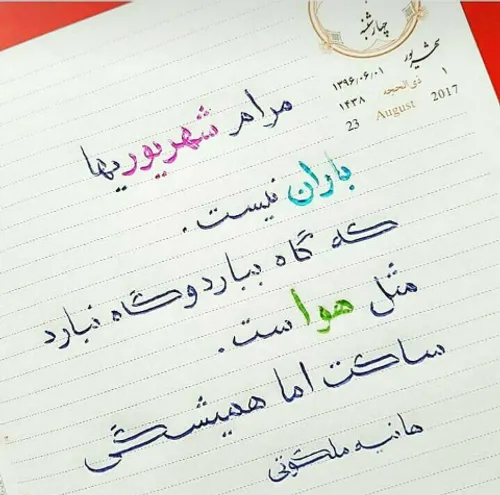 چهارشنبه
شهریور
۱
۱۳۹۶/۰۶/۰۱
ذی‌الحجه
۱۴۳۸
23 August 2017
مرام شهریوریها
باران نیست .
که گاه ببارد و گاه نبارد
مثل هواست .
ساکت اما همیشگی
هانیه ملکوتی